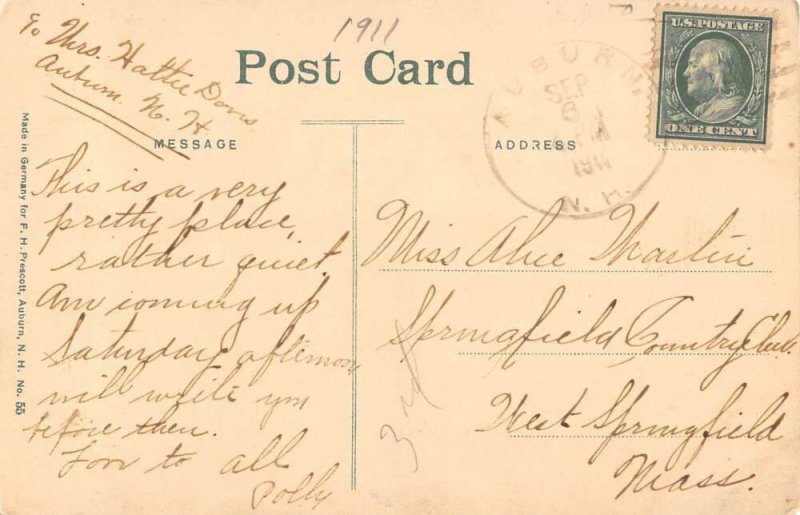 1911
Post Card
℅ Mrs. Hattie Davis
Auburn. N. H
MESSAGE
This is a very
pretty place,
rather quiet.
Am coming up
Saturday afternoon
will write you
before then.
Love to all
Polly
Made in Germany for F. H. Prescott, Auburn, N. H. No. 55
AUBURN,
SEP
6
1911
N. H.
U.S. POSTAGE
ONE CENT
ADDRESS
Miss Alice Martin
Springfield Country Club.
West Springfield
Mass.
3rd